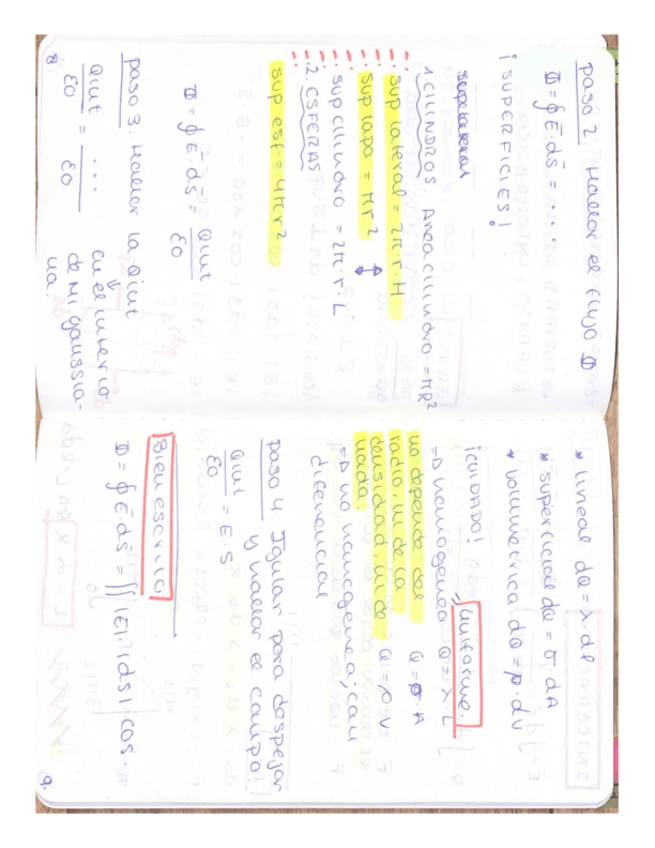 paso 2. Hallar el flujo Φ
Φ = ∮ E · ds = ....
¡ SUPERFICIES !
1 CILINDROS Area cilindro = πR²
sup lateral = 2π · r · H
sup tapa = πr²
sup cilindro = 2π · r · L
2. ESFERAS
sup esf = 4πr²
Φ = ∮ E · ds = Qint / ε0
paso 3. Hallar la Qint
Qint / ε0 = ... / ε0
en el interior
de mi gaussia-
na.
8.
* lineal dQ = λ · dl
* superficial dQ = σ · dA
* volumetrica dQ = ρ · dv
¡CUIDADO!
uniforme.
⇒ homogenea Q = λ · L
no depende del
radio, ni de la
densidad, ni de
nada.
Q = σ · A
Q = ρ · v
⇒ no homogenea; con
diferencial
paso 4. Igular para despejar
y hallar el campo!
Qint / ε0 = E · S
Bien escrito
Φ = ∮ E ds = ∫∫ |E| · |ds| cos ·
9.